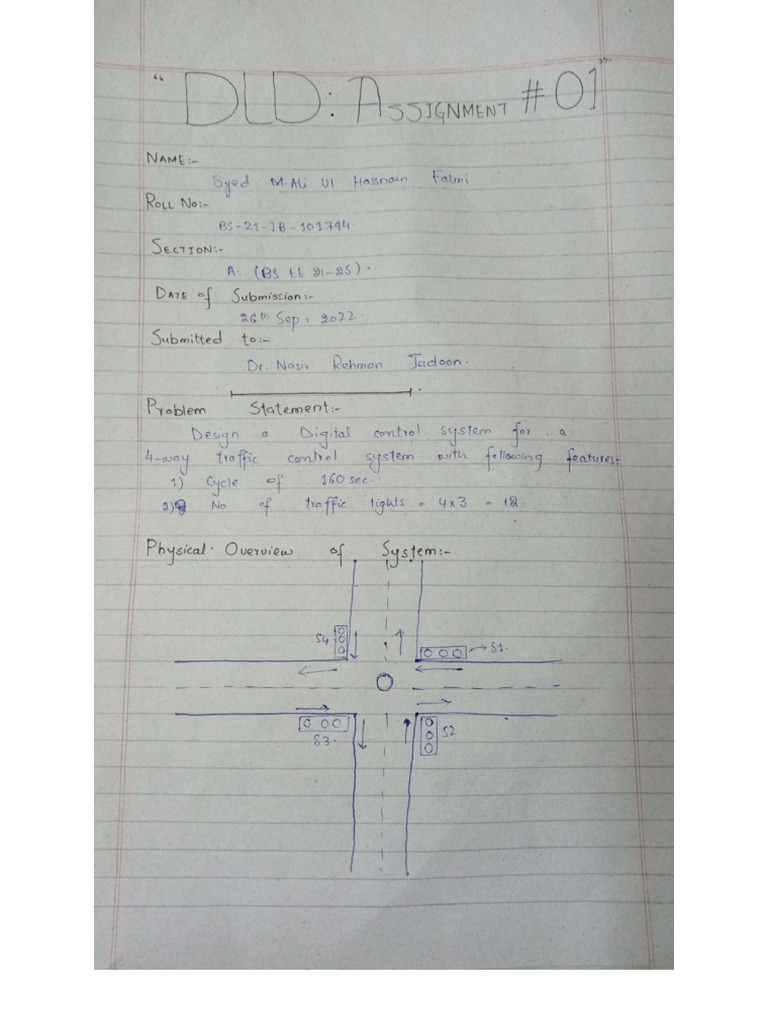 "DLD: ASSIGNMENT #01"
NAME:-
Syed M.Ali Ul Hassnain Falmi
ROLL NO:-
BS-21-IB-101794
SECTION:-
A. (BS EE 21-25).
DATE of Submission:-
26th Sep, 2022.
Submitted to:-
Dr. Nasir Rehman Jadoon.
Problem Statement:-
Design a Digital control system for a
4-way traffic control system with following features:
1) Cycle of 160 sec.
2) No of traffic lights = 4x3 = 12.
Physical Overview of System:-
S4
S1.
S2
S3.